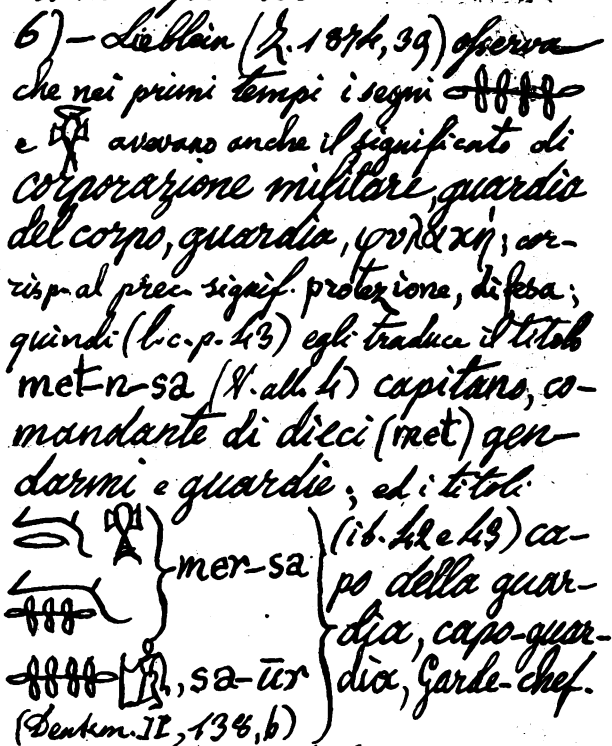 6) – Lieblein (Z. 1874, 39) osserva
che nei primi tempi i segni
e avevano anche il significato di
corporazione militare, guardia
del corpo, guardia, φυλακή; cor-
risp. al prec. signif. protezione, difesa;
quindi (l. c. p. 43) egli traduce il titolo
met-n-sa (V. all. 4) capitano, co-
mandante di dieci (met) gen-
darmi e guardie; ed i titoli
mer-sa (ib. 42 e 43) ca-
po della guar-
dia, capo-guar-
, sa-ūr dia, Garde-chef.
(Denkm. II, 138, b)